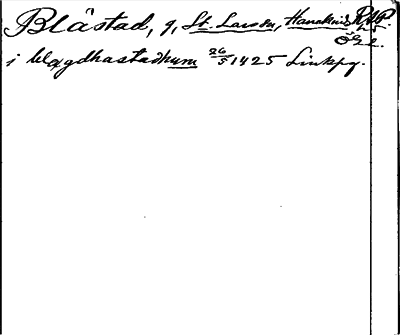 Blåstad, g, St. Larson, Hanekinds RAP.
Ög 2.
i blagdhastadhum 26/5 1425 Linkpg.